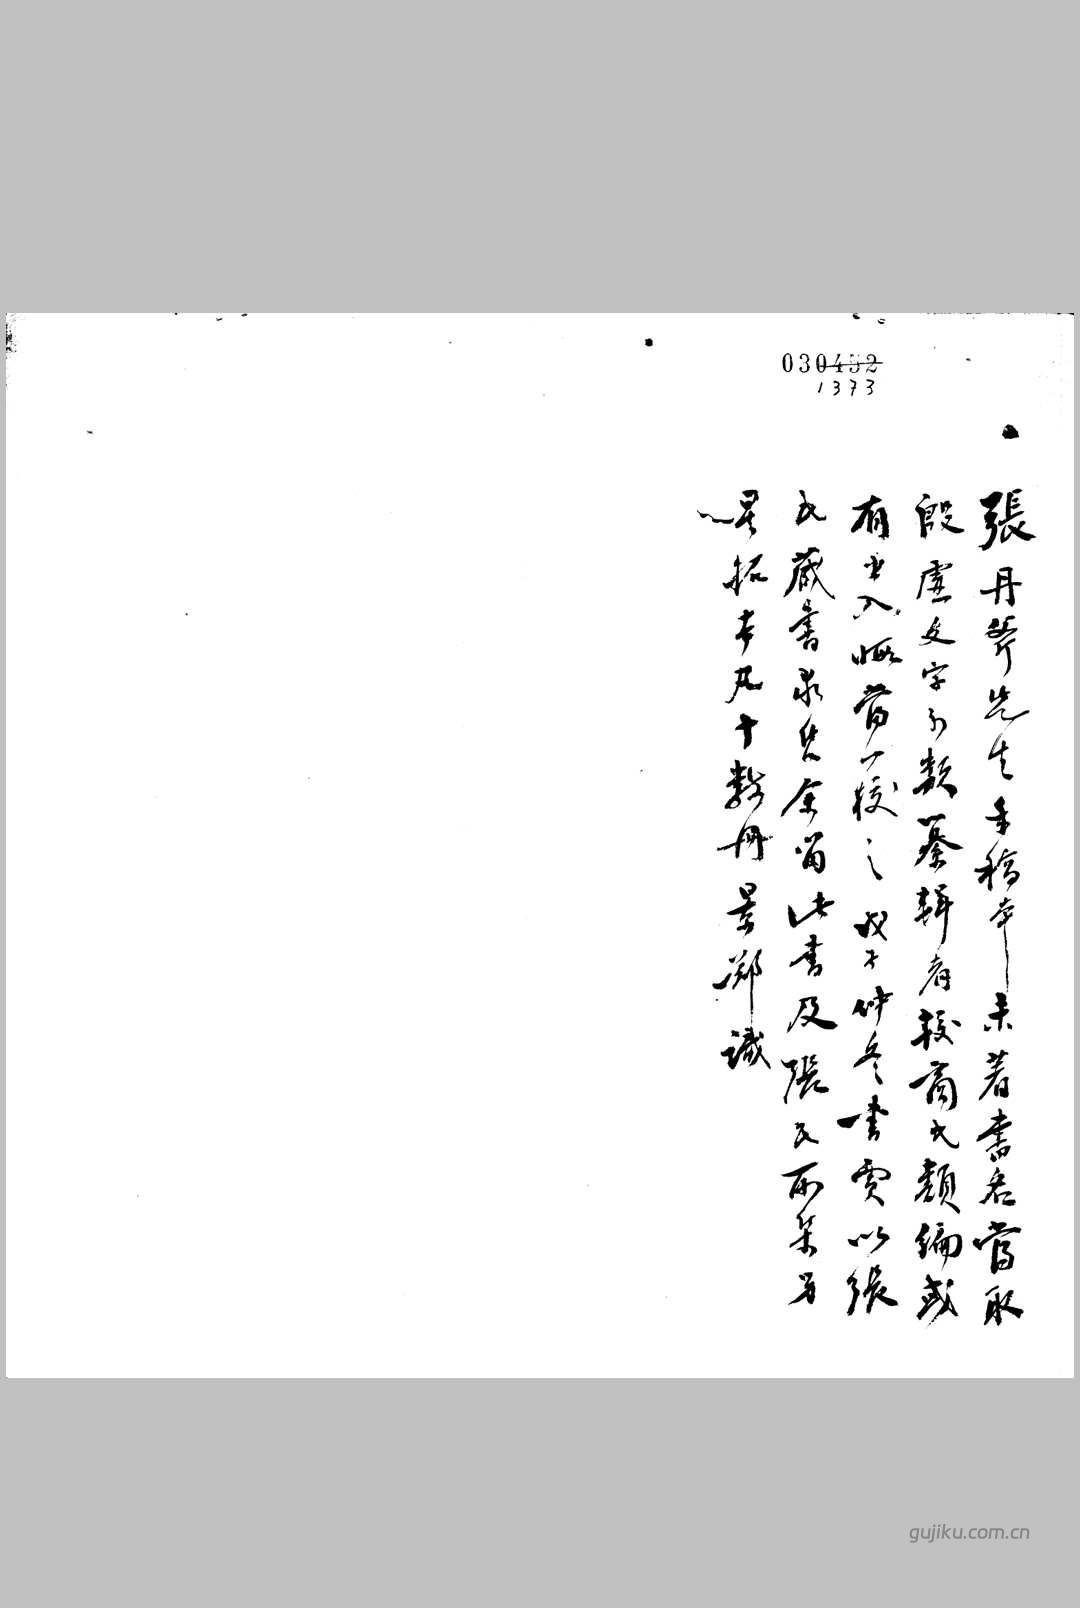 030452
1373
張丹斧先生手稿本未著書名當取
殷虛文字分類纂輯者較商氏類編或
有出入暇當一校之戊子仲冬書賈以張
氏藏書求售余留此書及張氏所集古
器拓本凡十數冊景鄭識
gujiku.com.cn